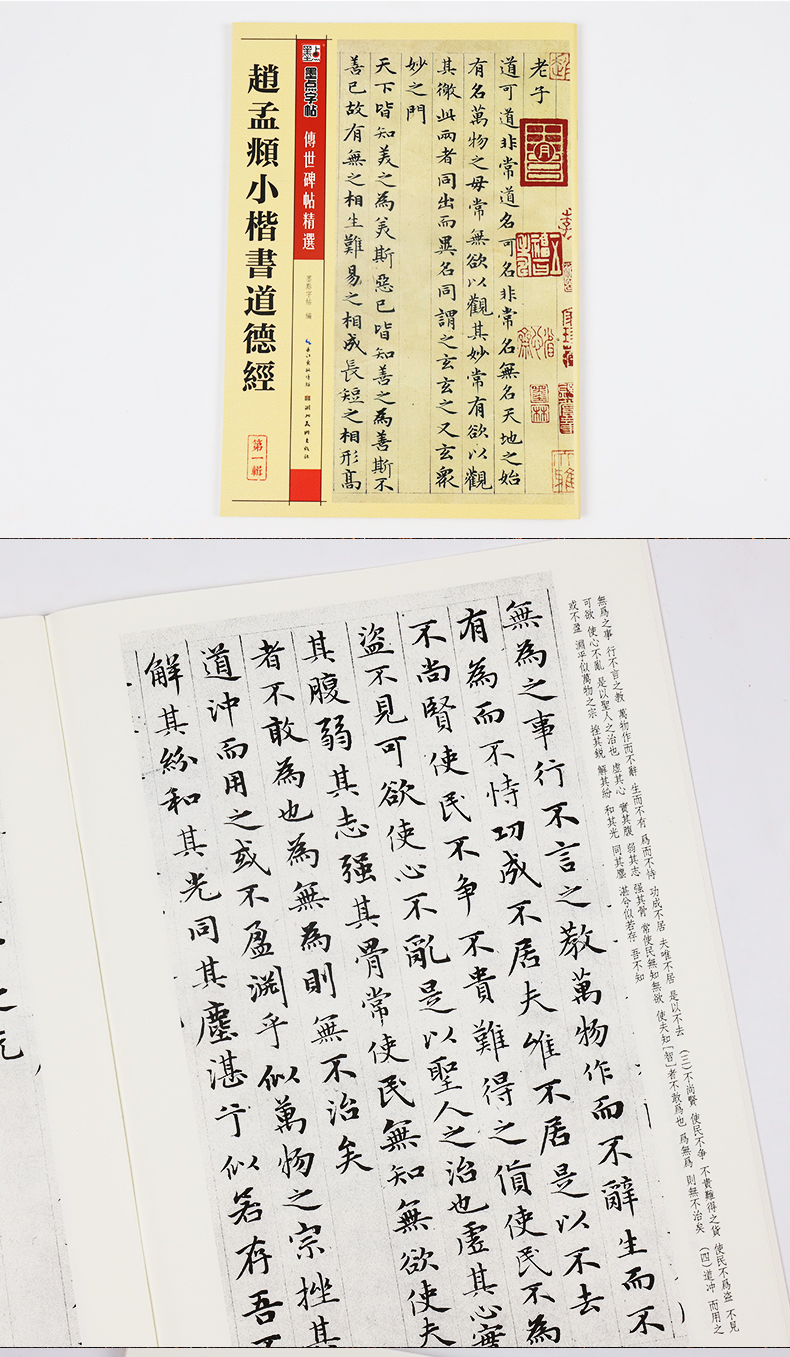 趙孟頫小楷書道德經
第一輯
墨点字帖
傳世碑帖精選
墨點字帖 編
老子
道可道非常道名可名非常名無名天地之始
有名萬物之母常無欲以觀其妙常有欲以觀
其徼此兩者同出而異名同謂之玄玄之又玄衆
妙之門
天下皆知美之為美斯惡已皆知善之為善斯不
善已故有無之相生難易之相成長短之相形高
無爲之事 行不言之教 萬物作而不辭 生而不有 爲而不恃 功成不居 夫唯不居 是以不去 (三)不尚賢 使民不争 不貴難得之貨 使民不爲盗 不見
可欲 使心不亂 是以聖人之治也 虚其心 實其腹 弱其志 强其骨 常使民無知無欲 使夫知「智」者不敢爲也 爲無爲 則無不治矣 (四)道冲 而用之
或不盈 淵乎似萬物之宗 挫其鋭 解其紛 和其光 同其塵 湛兮似若存 吾不知
無為之事行不言之教萬物作而不辭生而不
有為而不恃功成不居夫唯不居是以不去
不尚賢使民不争不貴難得之貨使民不為
盗不見可欲使心不亂是以聖人之治也虚其心實
其腹弱其志强其骨常使民無知無欲使夫
者不敢為也為無為則無不治矣
道冲而用之或不盈淵乎似萬物之宗挫其
解其紛和其光同其塵湛兮似若存吾不